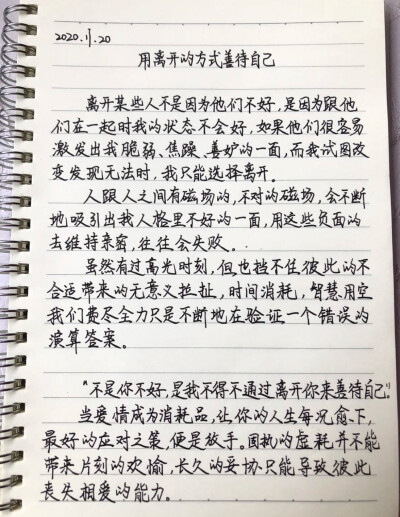 2020.11.20
用离开的方式善待自己
离开某些人不是因为他们不好，是因为跟他
们在一起时我的状态不会好，如果他们很容易
激发出我脆弱、焦躁、善妒的一面，而我试图改
变发现无法时，我只能选择离开。
人跟人之间有磁场的，不对的磁场，会不断
地吸引出我人格里不好的一面，用这些负面的
去维持亲密，往往会失败。
虽然有过高光时刻，但也挡不住彼此的不
合适带来的无意义拉扯，时间消耗，智慧用空
我们费尽全力只是不断地在验证一个错误的
演算答案。
“不是你不好，是我不得不通过离开你来善待自己”。
当爱情成为消耗品，让你的人生每况愈下，
最好的应对之策，便是放手。困执的虚耗并不能
带来片刻的欢愉，长久的妥协只能导致彼此
丧失相爱的能力。